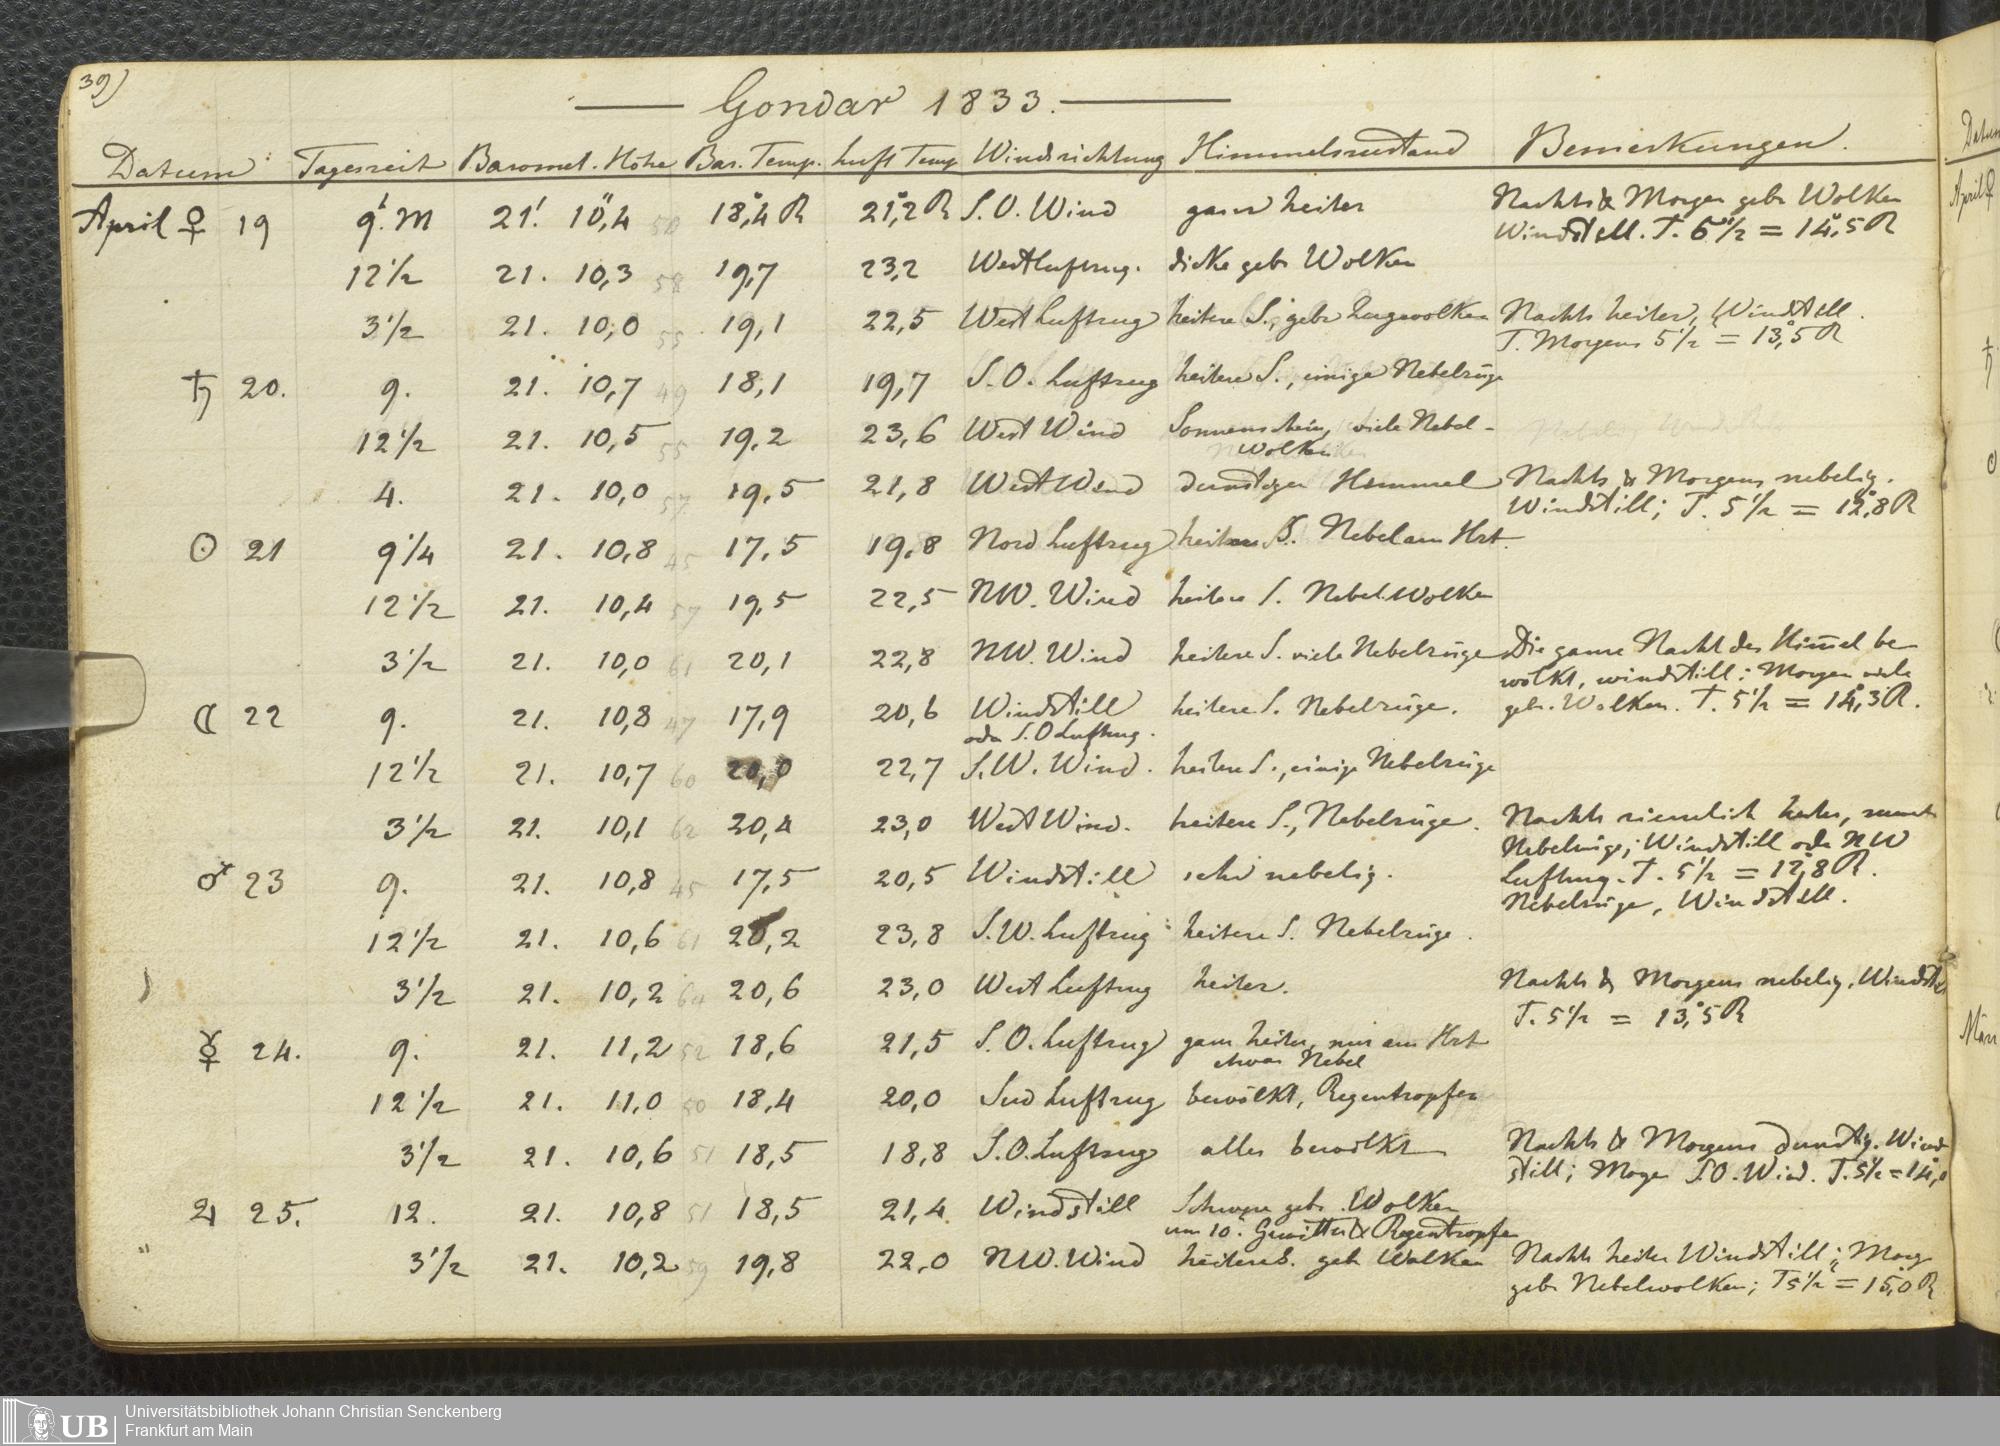 39)
Gondar 1833.
Datum Tagesszeit Baromet. Höhe Bar. Temp. Luft Temp Windsrichtung Himmelszustand Bemerkungen.
April ♀ 19 9' M 21' 10",4 58 18°,4 R 21°,2 R S.O. Wind ganz heiter Nachts & Morgen gebr Wolken
Windstill. T. 5½ = 14°,5 R
12½ 21. 10,3 58 19,7 23,2 West Luftzug. dicke gebr Wolken
3½ 21. 10,0 55 19,1 22,5 West Luftzug heitere S., gebr Zugwolken Nachts heiter, Windstill.
T. Morgens 5½ = 13°,5 R
♄ 20. 9. 21. 10,7 49 18,1 19,7 S.O. Luftzug heitere S., einige Nebelzüge
12½ 21. 10,5 55 19,2 23,6 West Wind Sonnenschein, viele Nebel-
wolken
4. 21. 10,0 57 19,5 21,8 West Wind dunstiger Himmel Nachts & Morgens nebelig.
Windstill; T. 5½ = 12°,8 R
☉ 21 9¼ 21. 10,8 45 17,5 19,8 Nord Luftzug heitere S. Nebel am Hrt.
12½ 21. 10,4 57 19,5 22,5 NW. Wind heitere S. Nebel Wolken
3½ 21. 10,0 61 20,1 22,8 NW. Wind heitere S. viele Nebelzüge Die ganze Nacht der Him̄el be
wölkt, windstill; Morgen viele
☾ 22 9. 21. 10,8 47 17,9 20,6 Windstill heitere S. Nebelzüge. gebr. Wolken. T. 5½ = 14°,3 R.
oder S.O Luftzug.
12½ 21. 10,7 60 20,0 22,7 S.W. Wind. heitere S., einige Nebelzüge
3½ 21. 10,1 62 20,4 23,0 West Wind. heitere S., Nebelzüge. Nachts ziemlich heiter,
Nebelzüge; Windstill oder NW
♂ 23 9. 21. 10,8 45 17,5 20,5 Windstill sehr nebelig. Luftzug. T. 5½ = 12°,8 R.
Nebelzüge, Windstill.
12½ 21. 10,6 61 20,2 23,8 S.W. Luftzug heitere S. Nebelzüge.
3½ 21. 10,2 64 20,6 23,0 West Luftzug heiter. Nachts & Morgens nebelig, Windst
T. 5½ = 13°,5 R
☿ 24. 9. 21. 11,2 52 18,6 21,5 S.O. Luftzug ganz heiter, nur am Hrt
etwas Nebel
12½ 21. 11,0 50 18,4 20,0 Sud Luftzug bewölkt, Regentropfen
3½ 21. 10,6 51 18,5 18,8 S.O. Luftzug alles bewölkt Nachts & Morgens dunstig. Wind
still; Morge S.O. Wind. T. 5½ = 14°,0
♃ 25. 12. 21. 10,8 51 18,5 21,4 Windstill Schwere gebr. Wolken
um 10. Gewitter & Regentropfen
" 3½ 21. 10,2 59 19,8 22,0 NW. Wind heitere S. gebr Wolken Nachts heiter Windstill; Morg
gebr Nebelwolken; T 5½ = 15°,0 R
Datum
April ♀
♄
☉
März
UB
Universitätsbibliothek Johann Christian Senckenberg
Frankfurt am Main